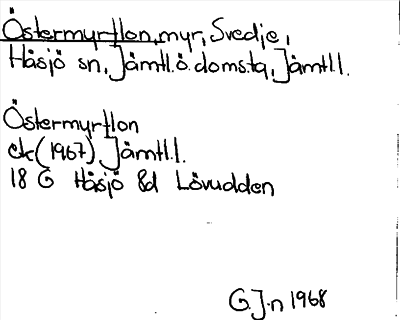 Östermyrflon, myr, Svedje,
Håsjö sn, Jämtl.ö.doms.tg, Jämtl.l.
Östermyrflon
ek (1967) Jämtl.l.
18 G Håsjö 8d Lövudden
G.J-n 1968